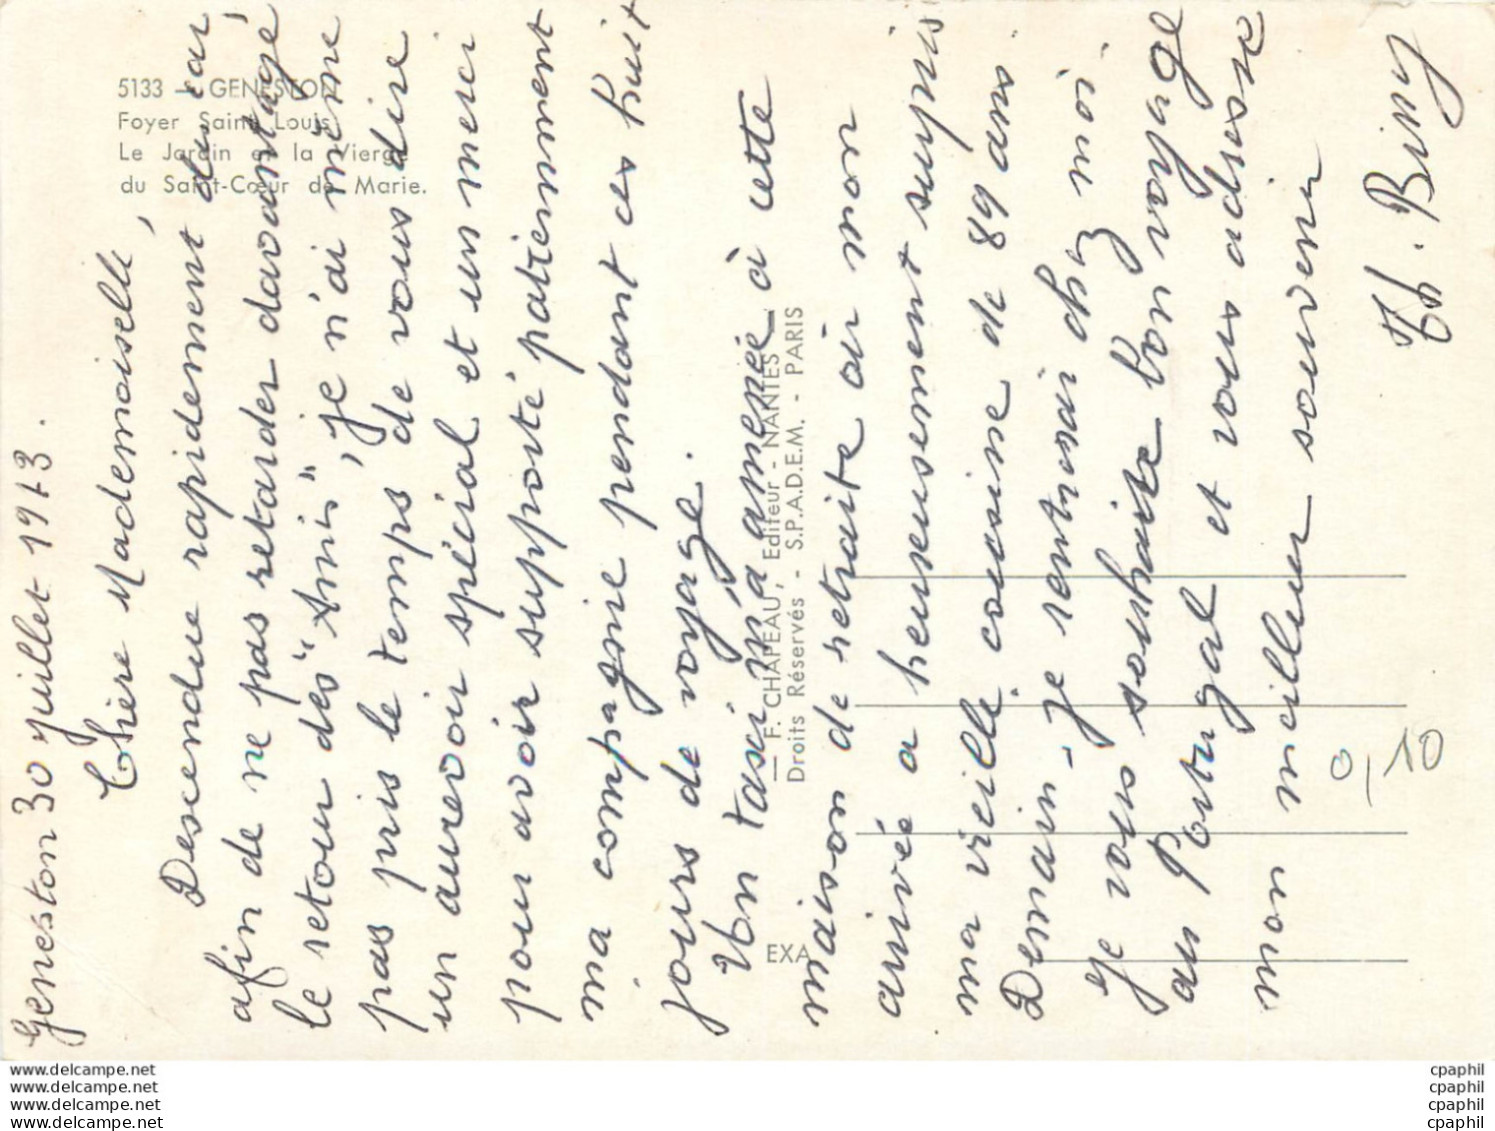 5133 — GENESTON
Foyer Saint Louis
Le Jardin et la Vierge
du Saint-Cœur de Marie.
Geneston 30 juillet 1973.
Chère Mademoiselle,
Descendue rapidement du car
afin de ne pas retarder davantage
le retour des "Amis", je n'ai même
pas pris le temps de vous dire
un aurevoir spécial et un merci
pour avoir supporté patiemment
ma compagnie pendant ces huit
jours de voyage.
Un taxi m'a amenée à cette
maison de retraite où mon
arrivée a heureusement surpris
ma vieille cousine de 89 ans.
Demain je rentrerai chez moi.
Je vous souhaite bon voyage
au Portugal et vous adresse
mon meilleur souvenir
Th. Bimy
F. CHAPEAU, Editeur - NANTES
Droits Réservés - S.P.A.D.E.M. - PARIS
EXA
0,10
www.delcampe.net
www.delcampe.net
www.delcampe.net
www.delcampe.net
cpaphil
cpaphil
cpaphil
cpaphil